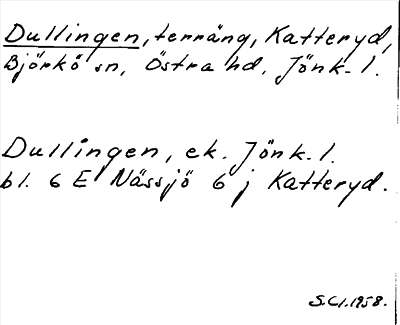 Dullingen, terräng, Katteryd,
Björkö sn, Östra hd, Jönk. l.
Dullingen, ek. Jönk. l.
bl. 6 E Nässjö 6 j Katteryd.
S.Cl. 1958.